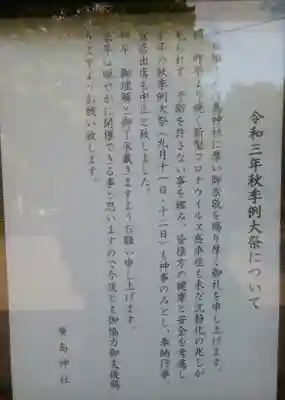 令和三年秋季例大祭について
神社に尊い御崇敬を賜り厚く御礼を申し上げます。
昨年より続く新型コロナウイルス感染症も未だ沈静化の兆しが
見られず、予断を許さない事を鑑み、皆様方の健康と安全を考慮し
本年の秋季例大祭(九月十一日・十二日)も神事のみとし、奉納行事、
露店出店も中止と致しました。
何卒、御理解と御了承戴きますようお願い申し上げます。
来年は賑やかに開催できる事と思いますので今後とも御協力御支援賜
りますようお願い致します。
島神社